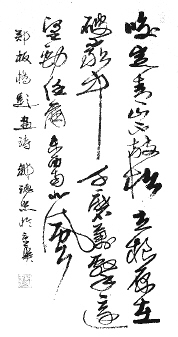 咬定青山不放松立根原在
破岩中千磨萬擊還
堅勁任爾東西南北風
鄭板橋題畫詩